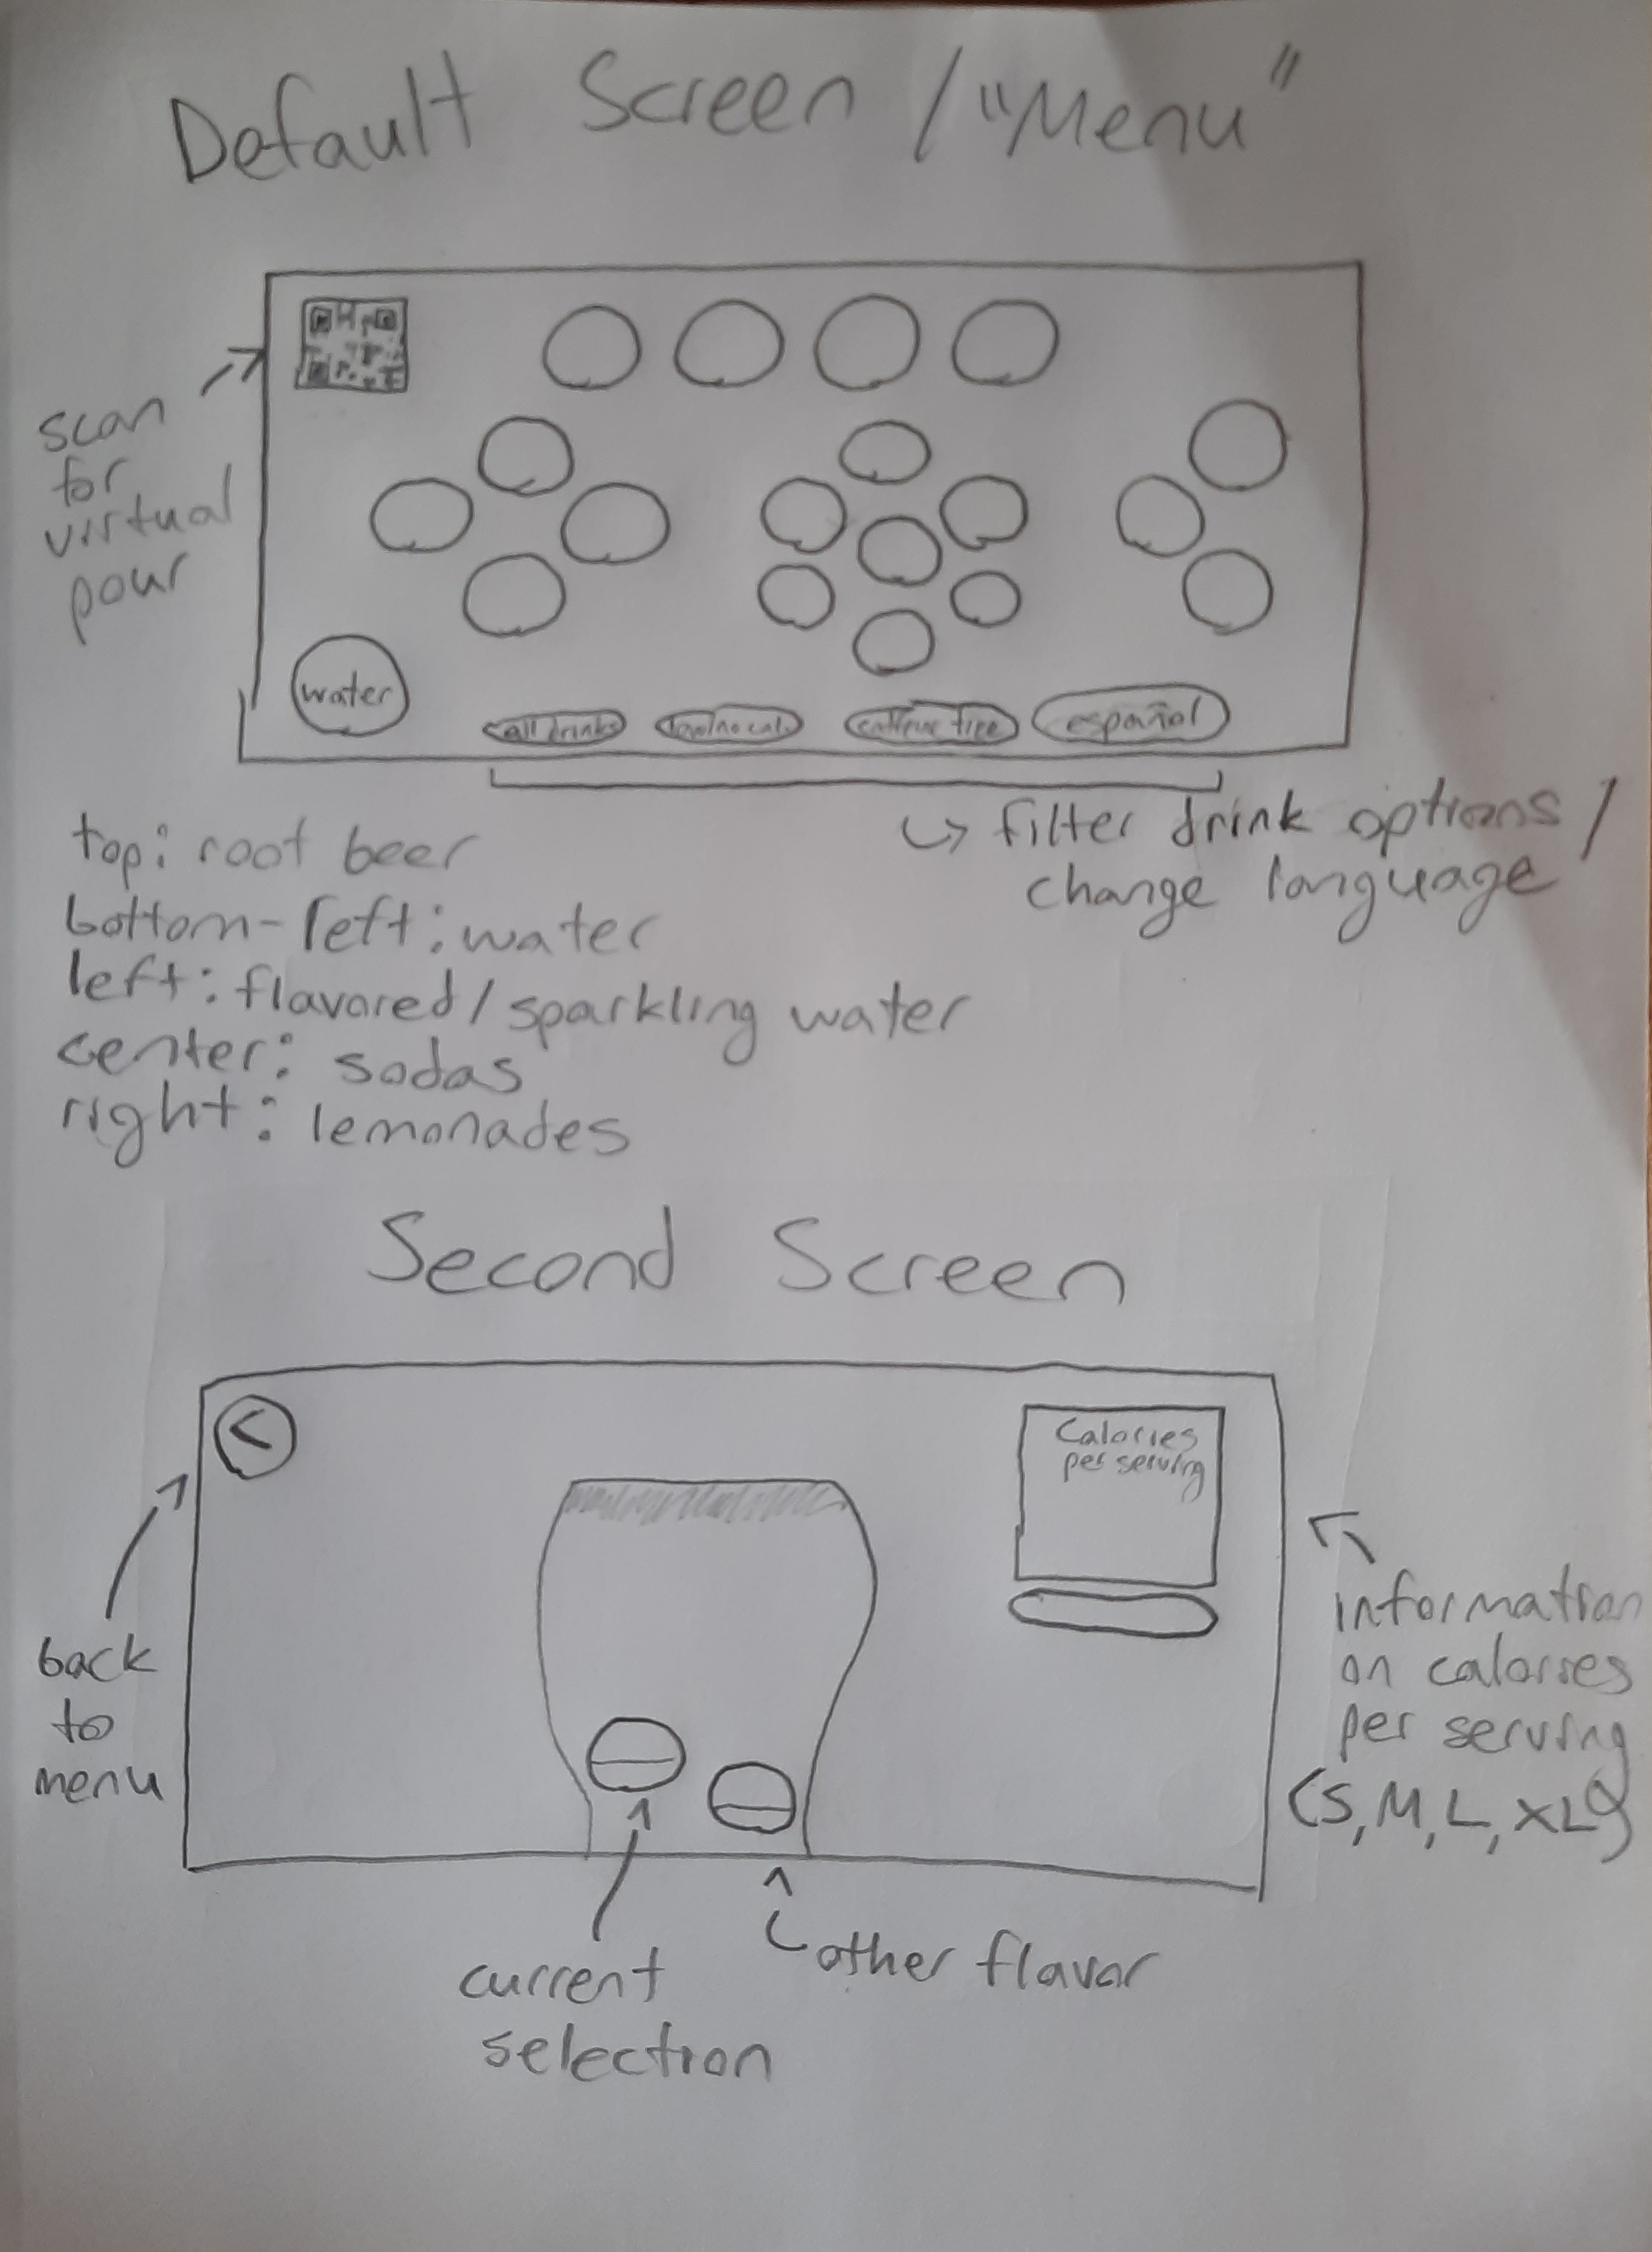 Default Screen / "Menu"
scan
for
virtual
pour
water
all drinks
low/no cal.
caffeine free
español
↳ filter drink options /
change language
top: root beer
bottom-left: water
left: flavored / sparkling water
center: sodas
right: lemonades
Second Screen
<
Calories
per serving
back
to
menu
information
on calories
per serving
(S, M, L, XL)
current
selection
other flavor